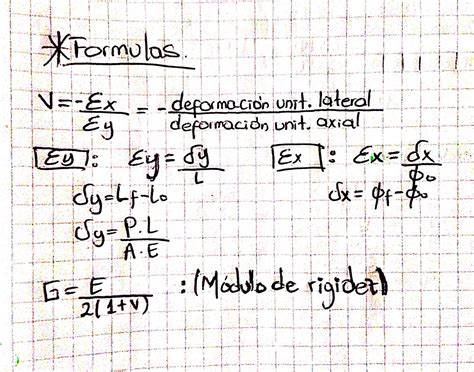 *Formulas.
V = -εx / εy = - deformación unit. lateral / deformación unit. axial
εy : εy = δy / L
εx : εx = δx / ϕo
δy = Lf - Lo
δx = ϕf - ϕo
δy = P.L / A.E
G = E / 2(1+V) : (Módulo de rigidez)